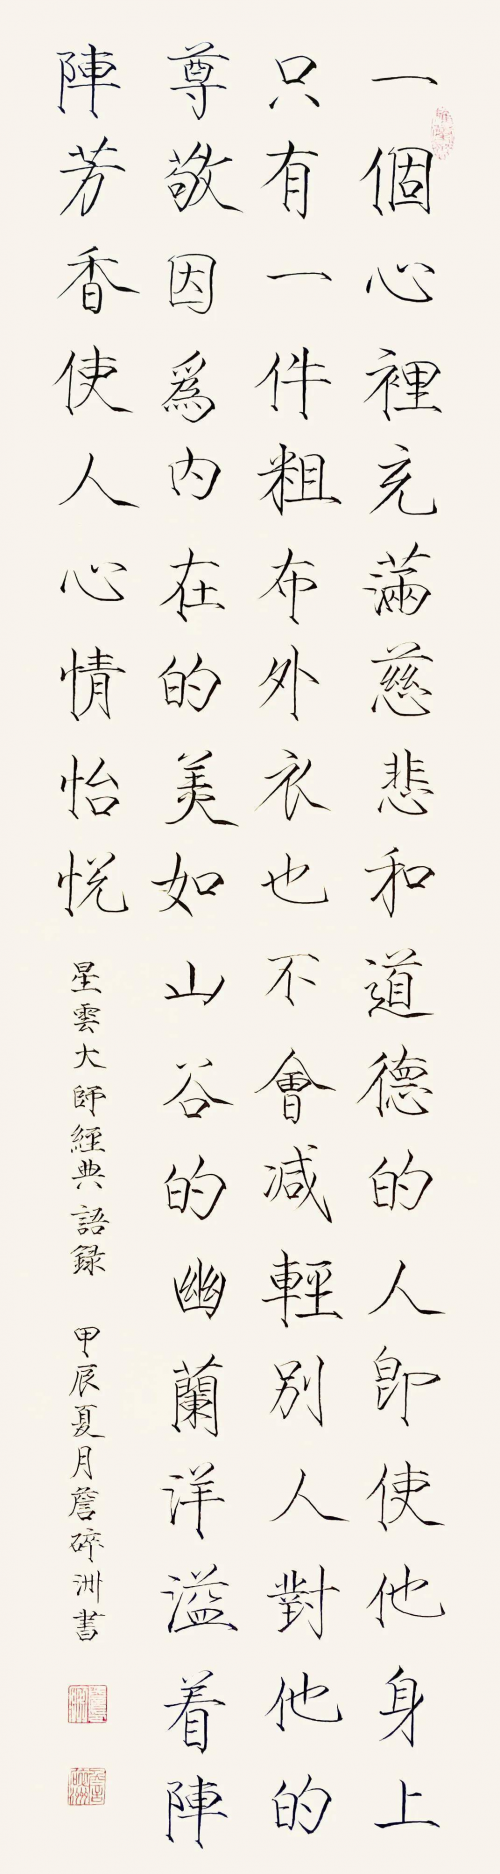 一個心裡充滿慈悲和道德的人即使他身上
只有一件粗布外衣也不會减輕別人對他的
尊敬因爲内在的美如山谷的幽蘭洋溢着陣
陣芳香使人心情怡悅
星雲大師經典語録 甲辰夏月詹碎洲書